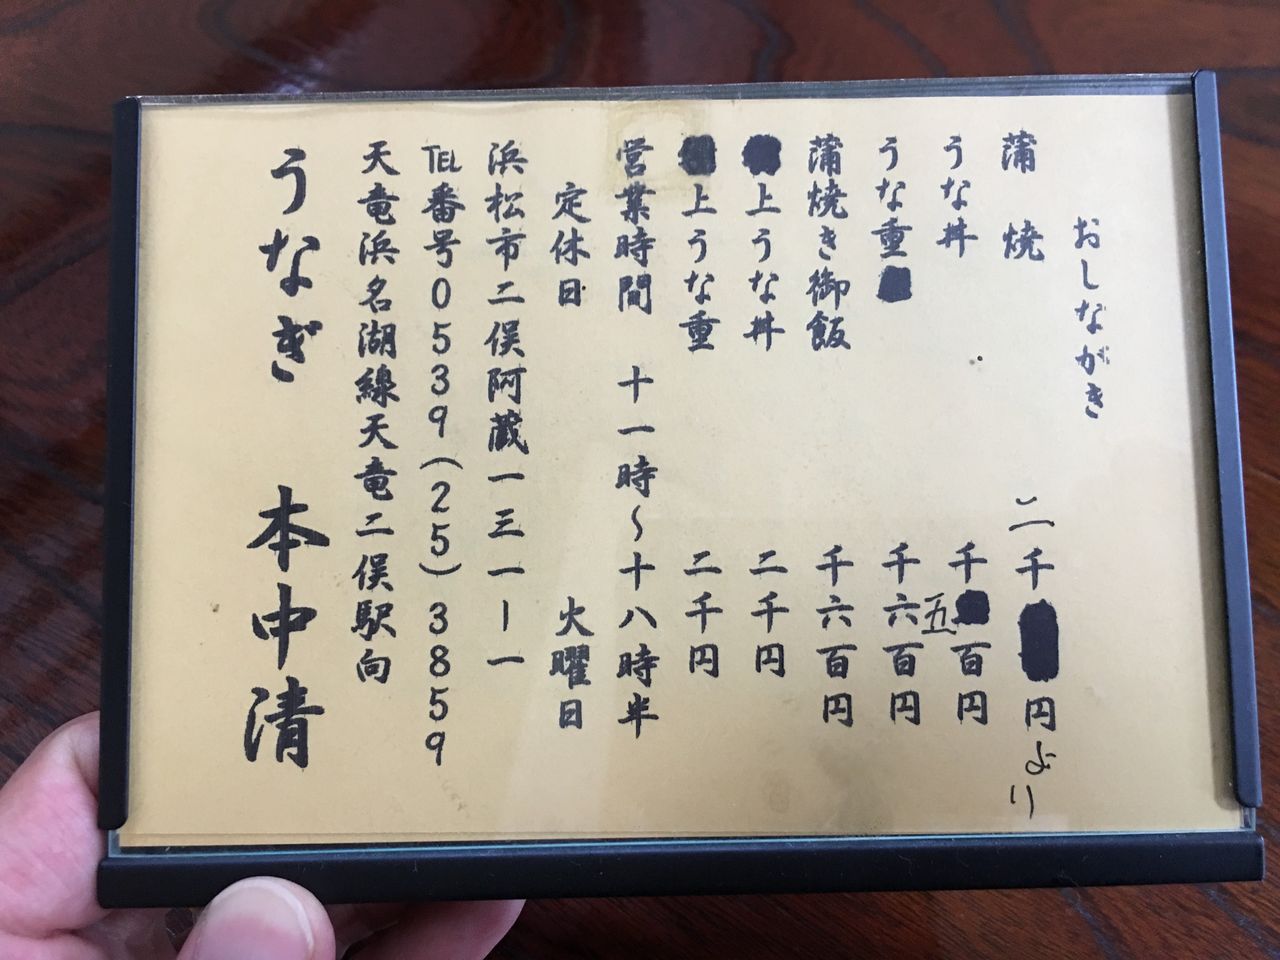 おしながき
蒲焼 二千円より
うな丼 千五百円
うな重 千六百円
蒲焼き御飯 千六百円
上うな丼 二千円
上うな重 二千円
営業時間 十一時〜十八時半
定休日 火曜日
浜松市二俣阿蔵一三一ー一
℡番号０５３９(２５)３８５９
天竜浜名湖線天竜二俣駅向
うなぎ 本中清